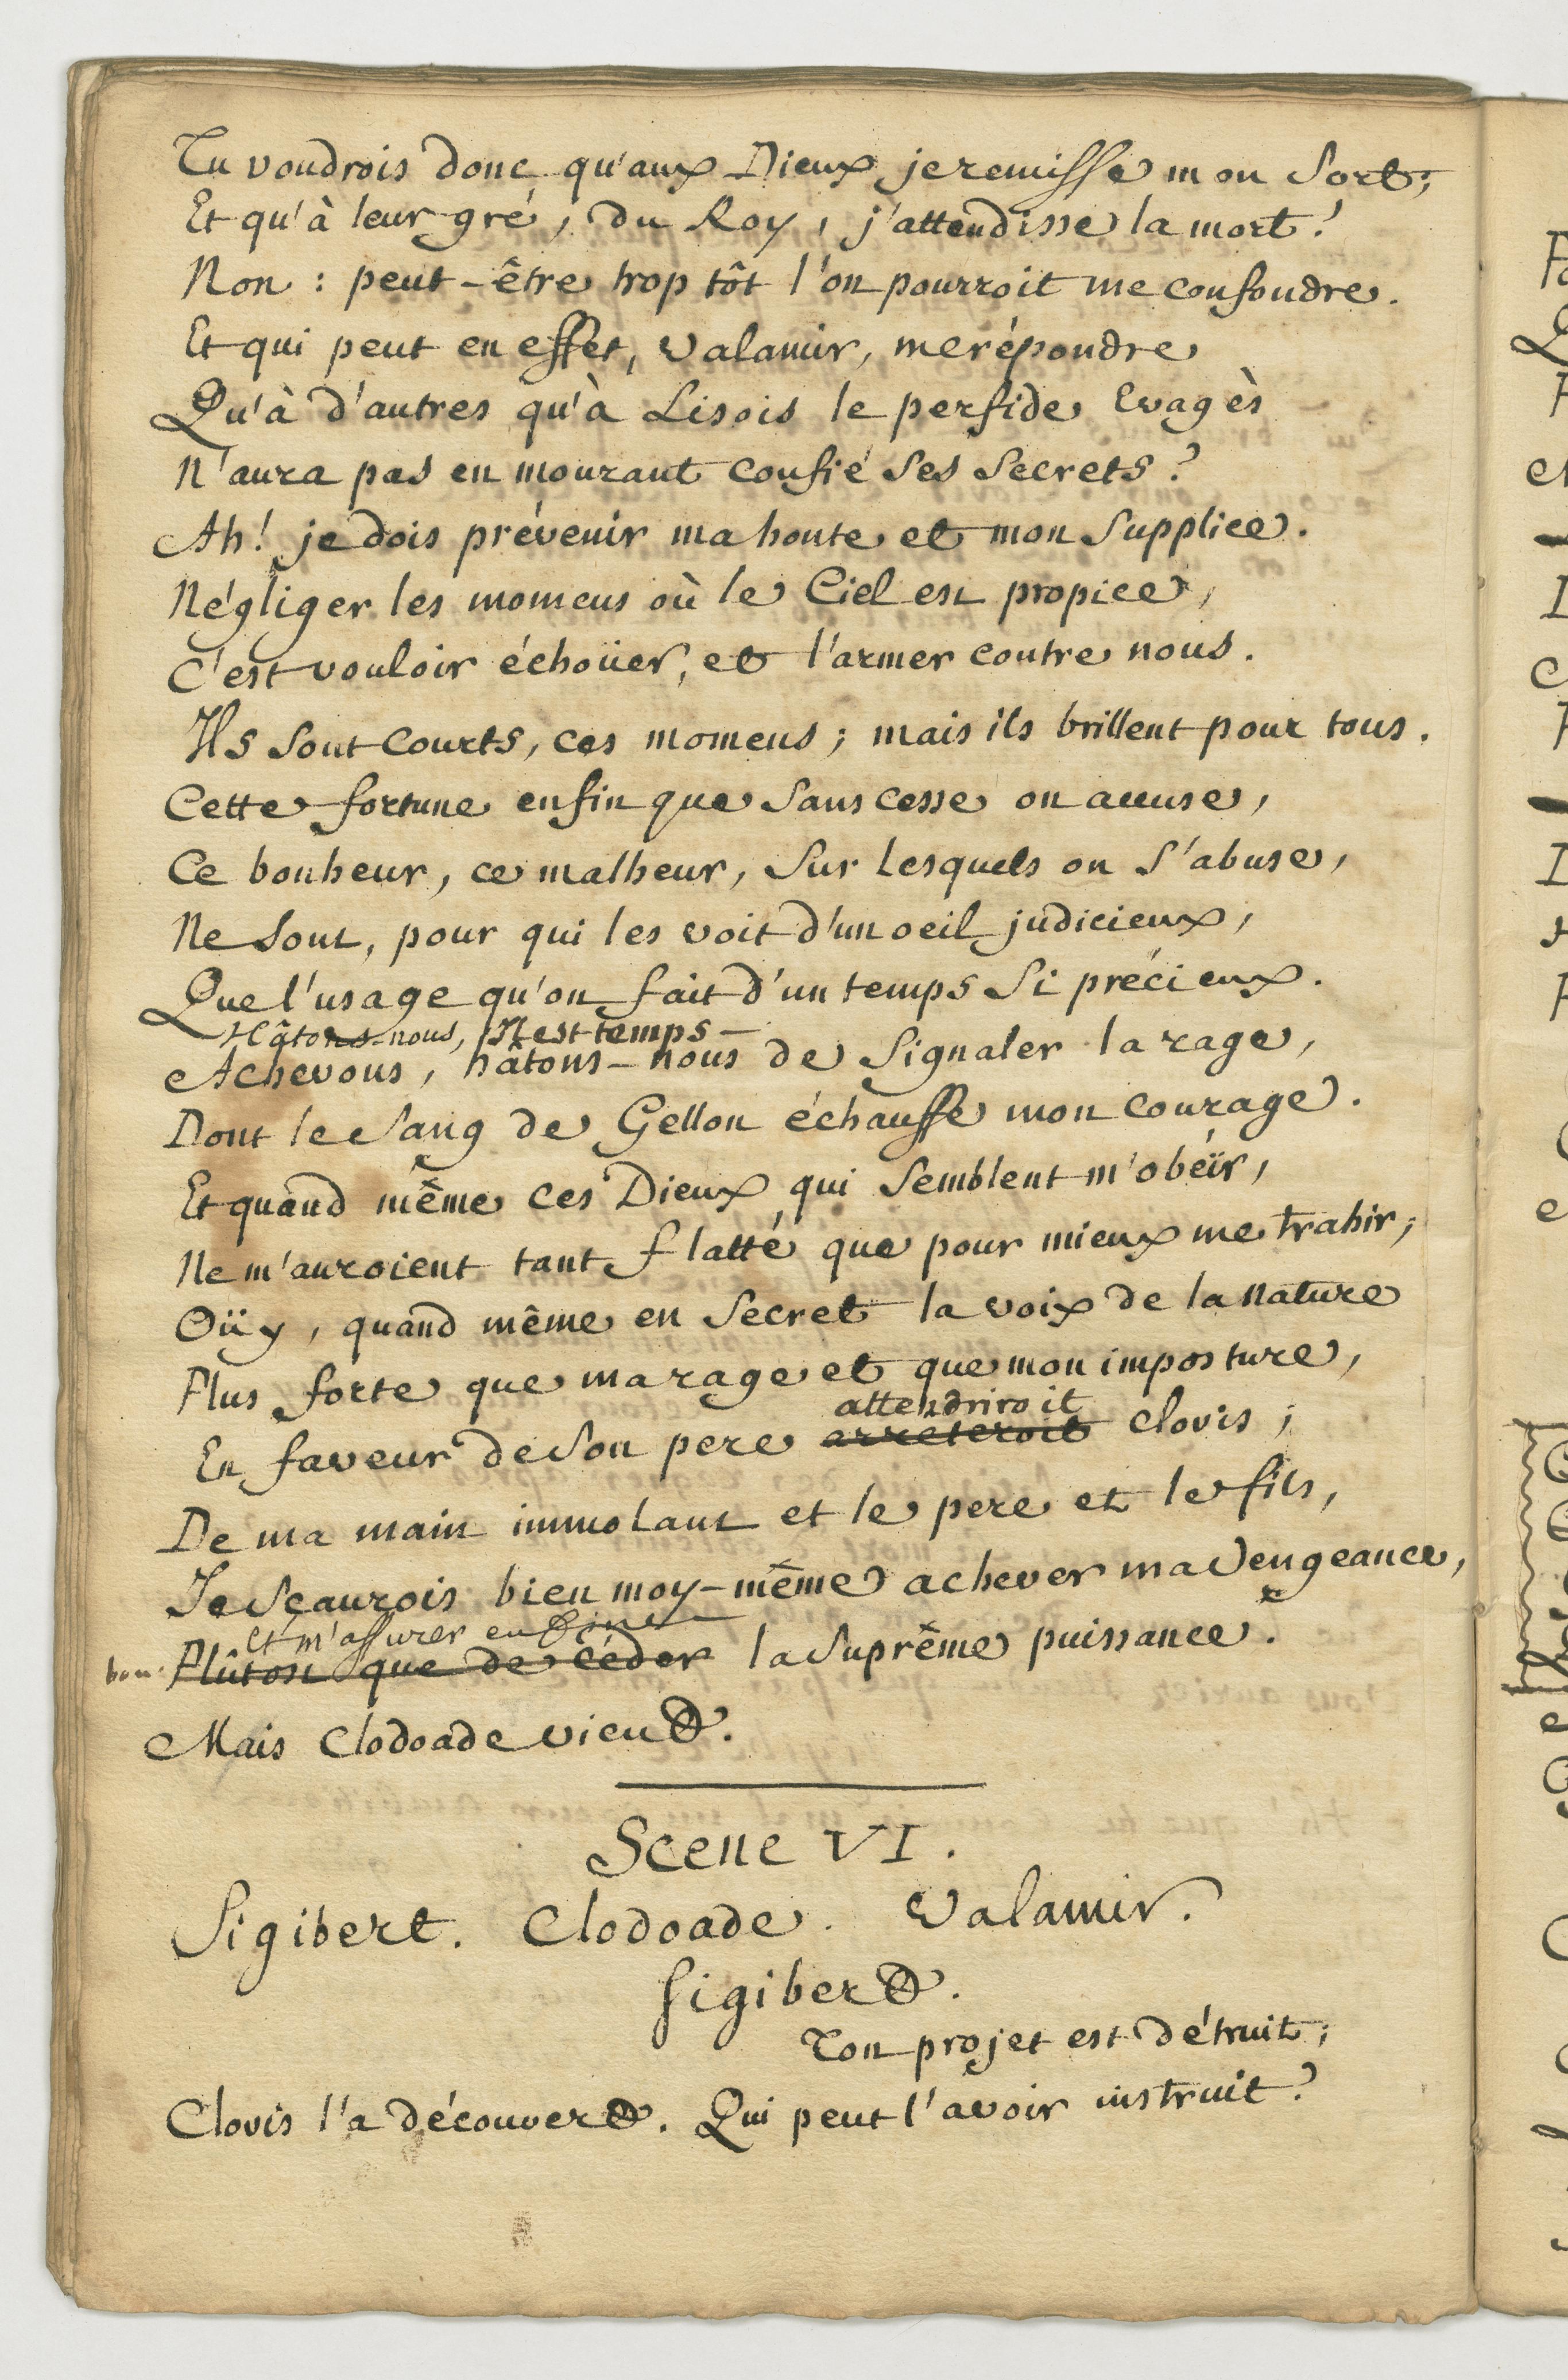 Tu voudrois donc qu'aux Dieux je remisse mon sort;
Et qu'à leur gré, du Roy, j'attendisse la mort?
Non : peut-être trop tôt l'on pourroit me confondre.
Et qui peut en effet, Valamir, me répondre
Qu'à d'autres qu'à Lisois le perfide Evagès
N'aura pas en mourant confié ses secrets?
Ah! je dois prévenir ma honte et mon supplice.
Négliger les momens où le Ciel est propice,
C'est vouloir échoüer, et l'armer contre nous.
Ils sont courts, ces momens; mais ils brillent pour tous.
Cette fortune enfin que sans cesse on accuse,
Ce bonheur, ce malheur, sur lesquels on s'abuse,
Ne sont, pour qui les voit d'un oeil judicieux,
Que l'usage qu'on fait d'un temps si précieux.
Hâtons-nous, Il est temps
Achevons, hâtons-nous de signaler la rage,
Dont le sang de Gellon échauffe mon courage.
Et quand même ces Dieux qui semblent m'obéïr,
Ne m'auroient tant flatté que pour mieux me trahir;
Oüy, quand même en secret la voix de la nature
Plus forte que ma rage et que mon imposture,
attendriroit
En faveur de son pere arreteroit Clovis;
De ma main immolant et le pere et le fils,
Je sçaurois bien moy-même achever ma vengeance,
et m'assurer enfin
bon. Plûtost que de céder la suprême puissance.
Mais Clodoade vient.
Scene VI.
Sigibert. Clodoade. Valamir.
Sigibert.
Ton projet est détruit;
Clovis l'a découvert. Qui peut l'avoir instruit?